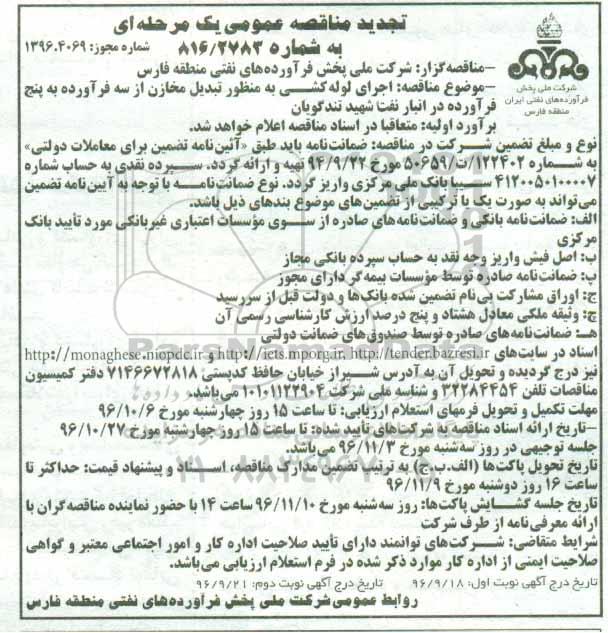 تجدید مناقصه عمومی یک مرحله‌ای
به شماره ۸۱۶/۲۷۸۳
شماره مجوز: ۱۳۹۶.۴۰۶۹
شرکت ملی پخش
فرآورده‌های نفتی ایران
منطقه فارس
–مناقصه‌گزار: شرکت ملی پخش فرآورده‌های نفتی منطقه فارس
–موضوع مناقصه: اجرای لوله‌کشی به منظور تبدیل مخازن از سه فرآورده به پنج
فرآورده در انبار نفت شهید تندگویان
برآورد اولیه: متعاقبا در اسناد مناقصه اعلام خواهد شد.
نوع و مبلغ تضمین شرکت در مناقصه: ضمانت‌نامه باید طبق «آئین‌نامه تضمین برای معاملات دولتی»
به شماره ۱۲۳۴۰۲/ت/۵۰۶۵۹ مورخ ۹۴/۹/۲۲ تهیه و ارائه گردد. سپرده نقدی به حساب شماره
۴۱۲۰۰۵۰۱۰۰۰۰۷ سیبا بانک ملی مرکزی واریز گردد. نوع ضمانت‌نامه با توجه به آیین‌نامه تضمین
می‌تواند به صورت یک یا ترکیبی از تضمین‌های موضوع بندهای ذیل باشد.
الف: ضمانت‌نامه بانکی و ضمانت‌نامه‌های صادره از سوی مؤسسات اعتباری غیربانکی مورد تأیید بانک
مرکزی
ب: اصل فیش واریز وجه نقد به حساب سپرده بانکی مجاز
پ: ضمانت‌نامه صادره توسط مؤسسات بیمه‌گر دارای مجوز
ج: اوراق مشارکت بی‌نام تضمین شده بانک‌ها و دولت قبل از سررسید
چ: وثیقه ملکی معادل هشتاد و پنج درصد ارزش کارشناسی رسمی آن
هـ: ضمانت‌نامه‌های صادره توسط صندوق‌های ضمانت دولتی
اسناد در سایت‌های http://tender.bazresi.ir ،http://iets.mporg.ir و http://monaghese.niopdc.ir
نیز درج گردیده و تحویل آن به آدرس شیراز خیابان حافظ کدپستی ۷۱۴۶۶۷۲۸۱۸ دفتر کمیسیون
مناقصات تلفن ۳۲۲۸۴۴۵۴ و شناسه ملی شرکت می‌باشد.
مهلت تکمیل و تحویل فرمهای استعلام ارزیابی: تا ساعت ۱۵ روز چهارشنبه مورخ ۹۶/۱۰/۶
–تاریخ ارائه اسناد مناقصه به شرکت‌های تأیید شده: تا ساعت ۱۵ روز چهارشنبه مورخ ۹۶/۱۰/۲۷
جلسه توجیهی در روز سه‌شنبه مورخ ۹۶/۱۱/۳ می‌باشد.
تاریخ تحویل پاکت‌ها (الف.ب.ج) به ترتیب تضمین مدارک مناقصه، اسناد و پیشنهاد قیمت: حداکثر تا
ساعت ۱۶ روز دوشنبه مورخ ۹۶/۱۱/۹
تاریخ جلسه گشایش پاکت‌ها: روز سه‌شنبه مورخ ۹۶/۱۱/۱۰ ساعت ۱۴ با حضور نماینده مناقصه‌گران با
ارائه معرفی‌نامه از طرف شرکت
شرایط متقاضی: شرکت‌های توانمند دارای تأیید صلاحیت اداره کار و امور اجتماعی معتبر و گواهی
صلاحیت ایمنی از اداره کار موارد ذکر شده در فرم استعلام ارزیابی می‌باشد.
تاریخ درج آگهی نوبت اول: ۹۶/۹/۱۸ تاریخ درج آگهی نوبت دوم: ۹۶/۹/۲۱
روابط عمومی شرکت ملی پخش فرآورده‌های نفتی منطقه فارس